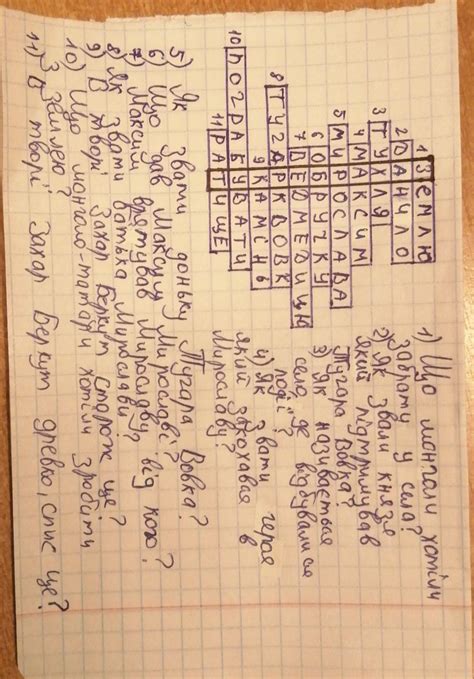 1 ЗЕМЛЮ
2 ДАНИЛО
3 ТУХЛЯ
4 МАКСИМ
5 МИРОСЛАВА
6 ОБРУЧКУ
7 ВЕДМЕДИЦЮ
8 ТУГАРКВОВК
9 КАМЕНЬ
10 ПОГРАБУВАТИ
11 РАТИЩЕ
1) Що монгали хотіли
забрати у села?
2) Як звали князя
який підтримував
Тугара Вовка?
3) Як називається
село де відбувалися
події?
4) Як звати героя
який закохався в
Мирославу?
5) Як звати доньку Тугара Вовка?
6) Що дав Максим Мирославі?
7) Максим врятував Мирославу від кого?
8) Як звати батька Мирослави?
9) В творі Захар Беркут сторож це?
10) Що монголо-татари хотіли зробити
з землею?
11) В творі Захар Беркут древко, спис це?